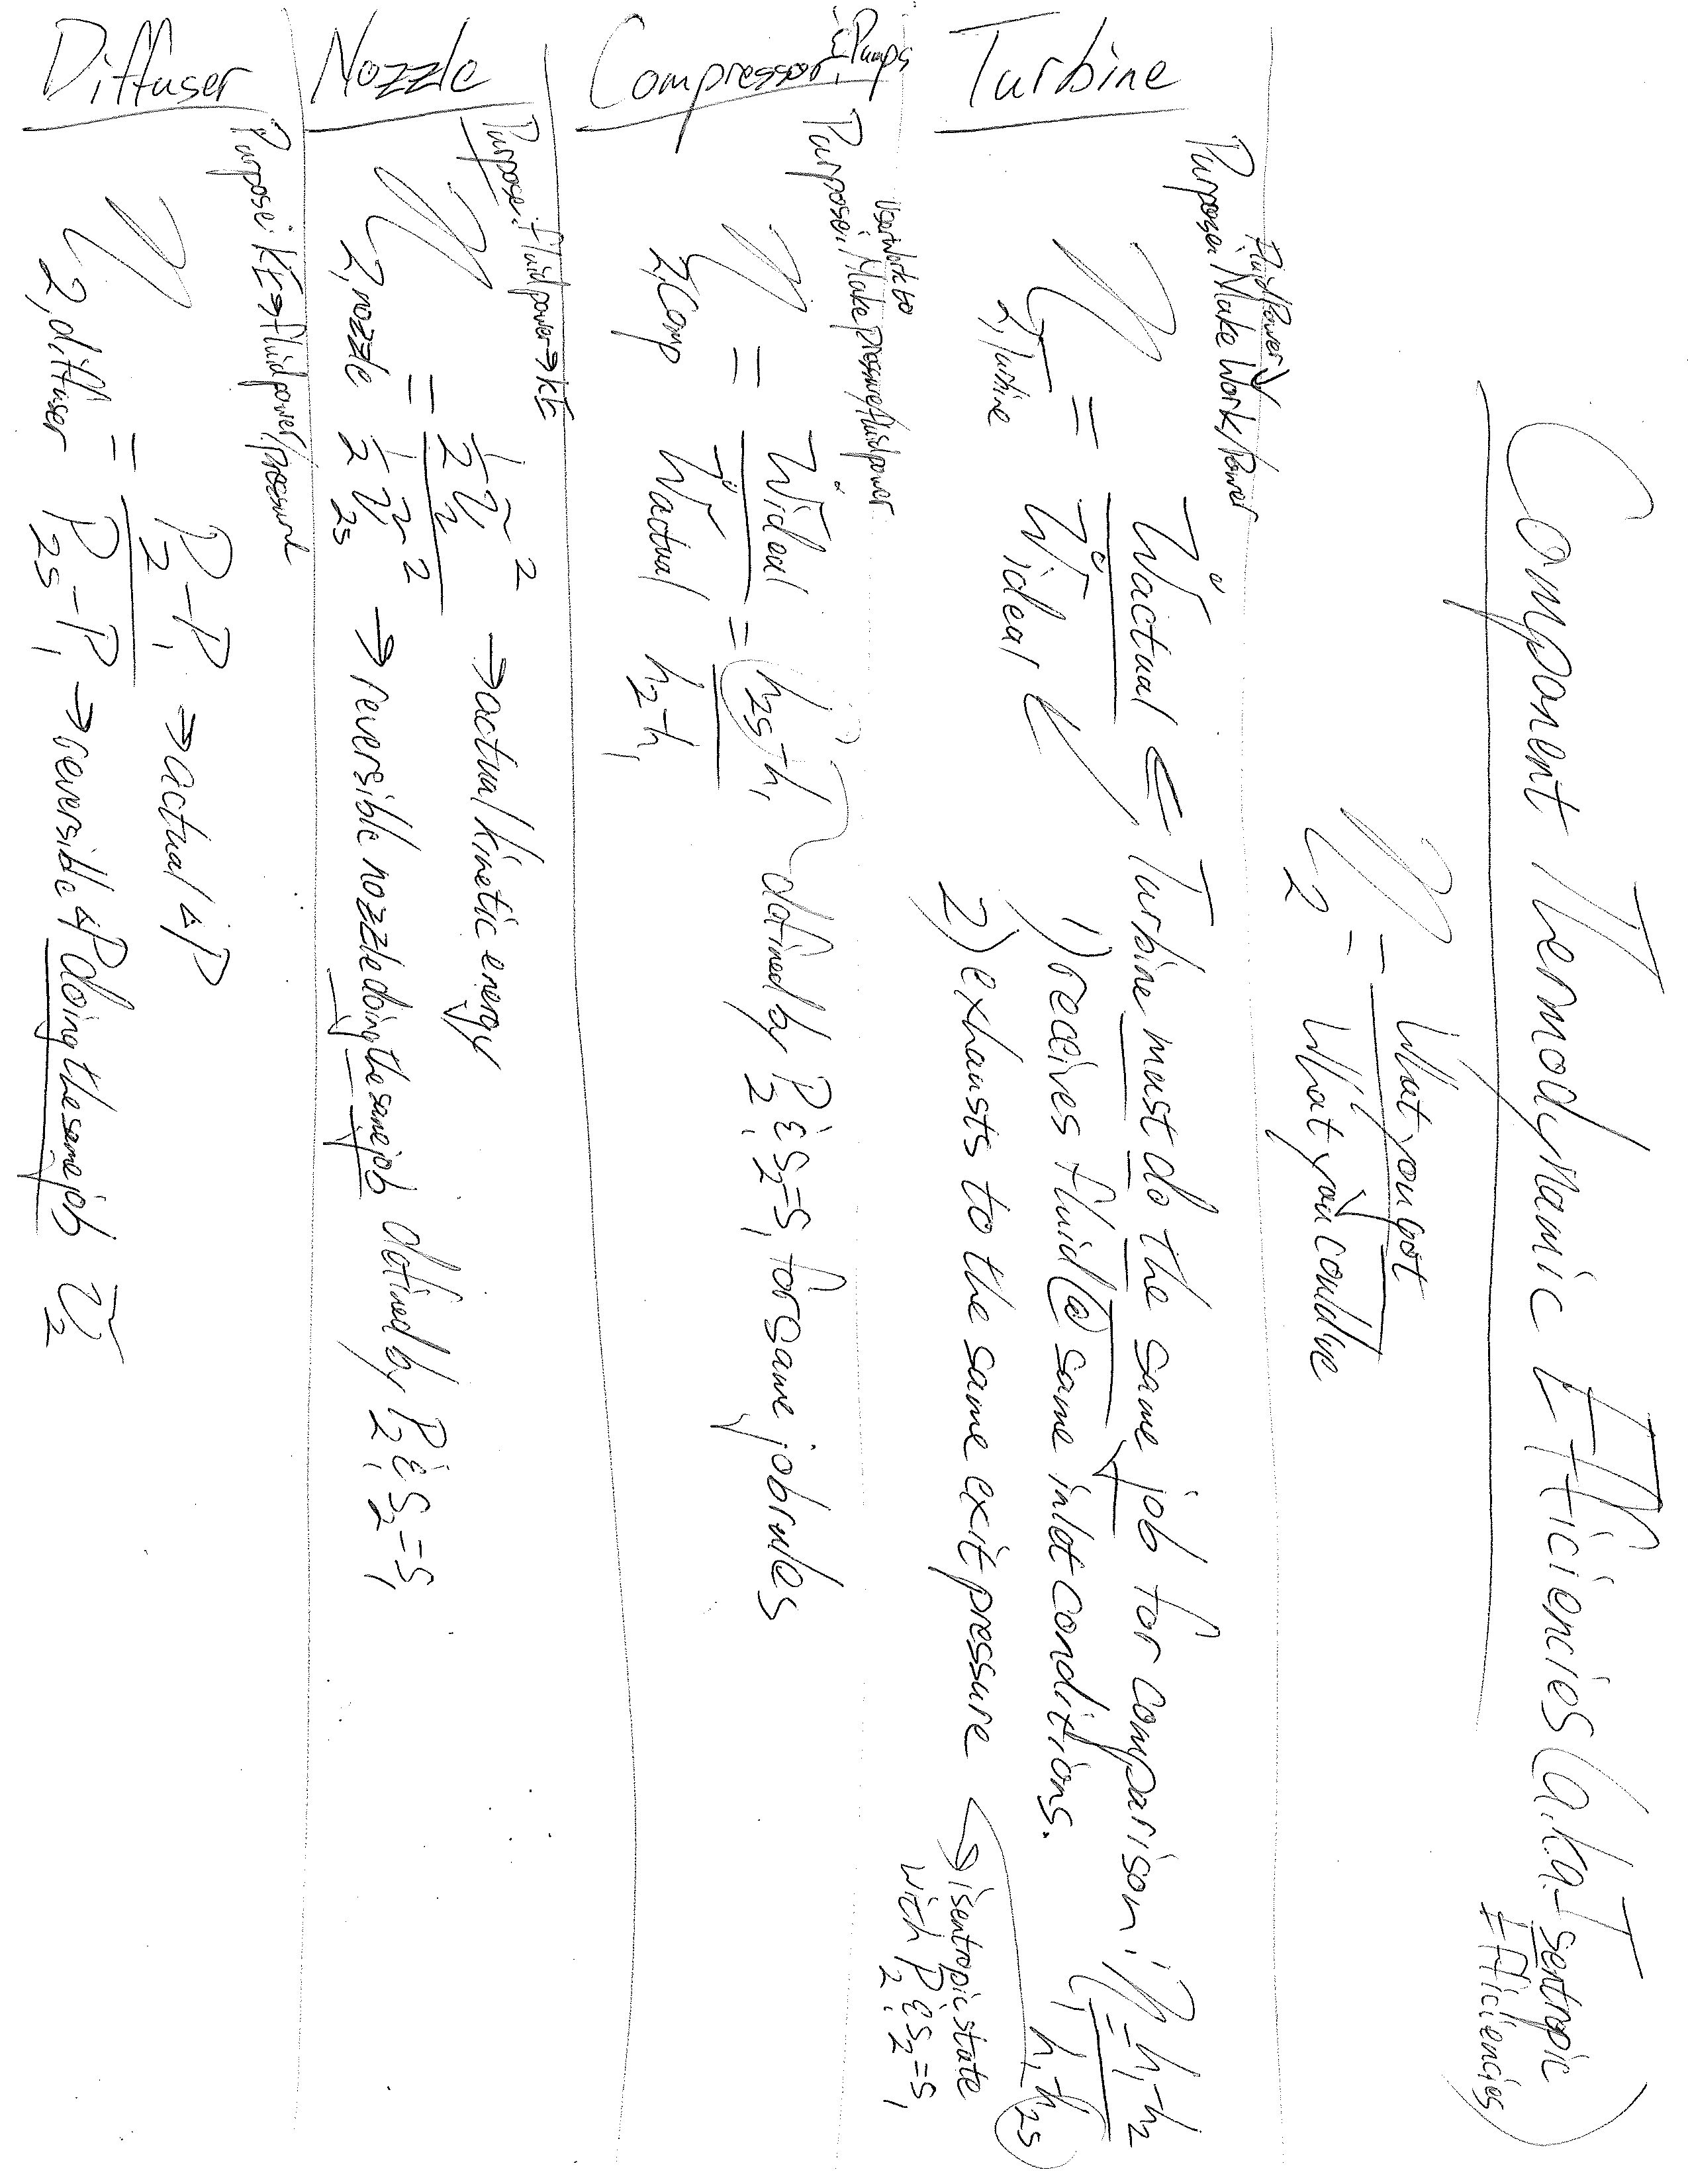 Component Thermodynamic Efficiencies (a.k.a. Isentropic Efficiencies)
η₂ = What you got / What you could've
Turbine
Fluid Power ↘
Purpose: Make Work/Power
η₂,Turbine = Ẇactual / Ẇideal
⇐ Turbine must do the same job for comparison:
η = h₁-h₂ / h₁-h₂s
1) receives fluid @ same inlet conditions.
2) exhausts to the same exit pressure
↪ isentropic state
with P₂ & s₂=s₁
Compressor & Pumps
Uses Work to
Purpose: Make pressure/fluid power
η₂,Comp = Ẇideal / Ẇactual = h₂s-h₁ / h₂-h₁
defined by P₂ & s₂=s₁ for same job rules
Nozzle
Purpose: fluid power → KE
η₂,nozzle = ½ V₂² / ½ V₂s²
→ actual kinetic energy
→ reversible nozzle doing the same job defined by P₂ & s₂=s₁
Diffuser
Purpose: KE → fluid power/pressure
η₂,diffuser = P₂-P₁ / P₂s-P₁
→ actual ΔP
→ reversible ΔP doing the same job V₂